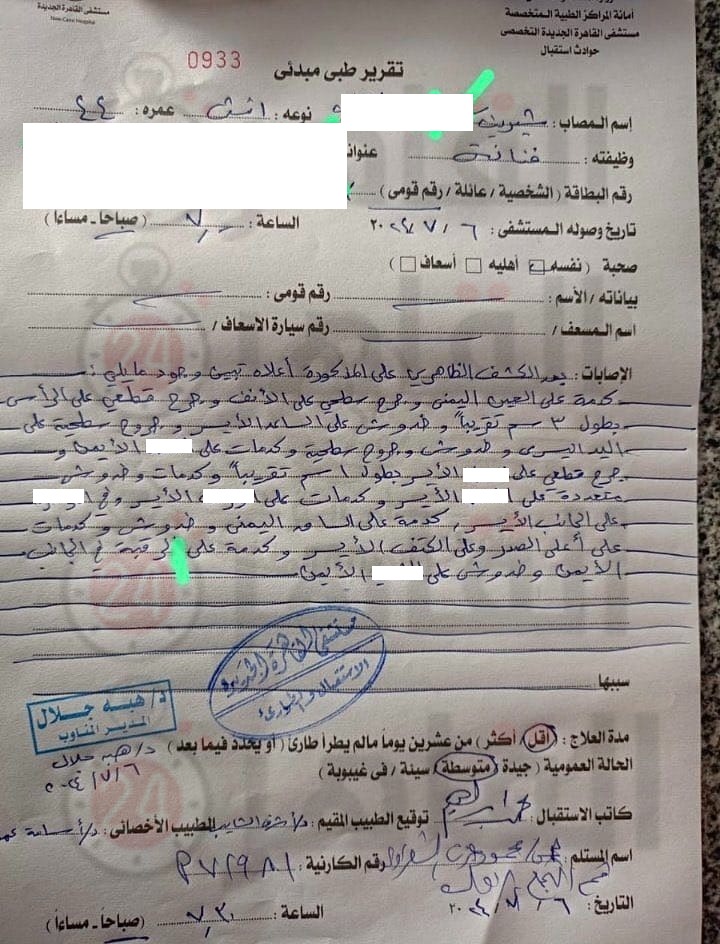 مستشفى القاهرة الجديدة
New Cairo Hospital
أمانة المراكز الطبية المتخصصة
مستشفى القاهرة الجديدة التخصصى
حوادث استقبال
0933
تقرير طبى مبدئى
إسم المصاب : شيرين نوعه : انثى عمره : ٤٤
وظيفته : فنانة
رقم البطاقة ( الشخصية / عائلة / رقم قومى )
تاريخ وصوله المستشفى : ٦ / ٧ / ٢٠٢٤ الساعة : ٧ ( صباحا - مساءا )
صحبة ( نفسه أهليه أسعاف )
بياناته / الأسم : رقم قومى :
اسم المسعف / رقم سيارة الاسعاف /
الإصابات : بعد الكشف الظاهري على المذكورة أعلاه تبين وجود ما يلي :
كدمة على العين اليمنى وجرح سطحي على الأنف وجرح قطعي على الرأس
بطول ٣ سم تقريباً وخدوش على الساعد الأيسر وجروح سطحية على
اليد اليسرى وخدوش وجروح سطحية وكدمات على الأيمن و
جرح قطعي على الأيسر بطول ١ سم تقريباً وكدمات وخدوش
متعددة على الأيسر وكدمات على الأيسر وفي
على الجانب الأيسر، كدمة على الساق اليمنى وخدوش وكدمات
على أعلى الصدر وعلى الكتف الأيسر وكدمة على الرقبة في الجانب
الأيمن وخدوش على الأيمن
مستشفى القاهرة الجديدة
الاستقبال والطوارئ
سببها
د/ هبه جلال
المدير المناوب
مدة العلاج : ( اقل / أكثر ) من عشرين يوماً مالم يطرأ طارئ ( أو يحدد فيما بعد )
د/ هبه جلال
٢٠٢٤/٧/٦
الحالة العمومية ( جيدة / متوسطة / سيئة / فى غيبوبة )
كاتب الاستقبال : توقيع الطبيب المقيم : الطبيب الأخصائى : د/ أسامة
اسم المستلم : رقم الكارنية :
التاريخ : ٦ / ٧ / ٢٠٢٤ الساعة : ٧,٣٠ ( صباحاً - مساءاً )